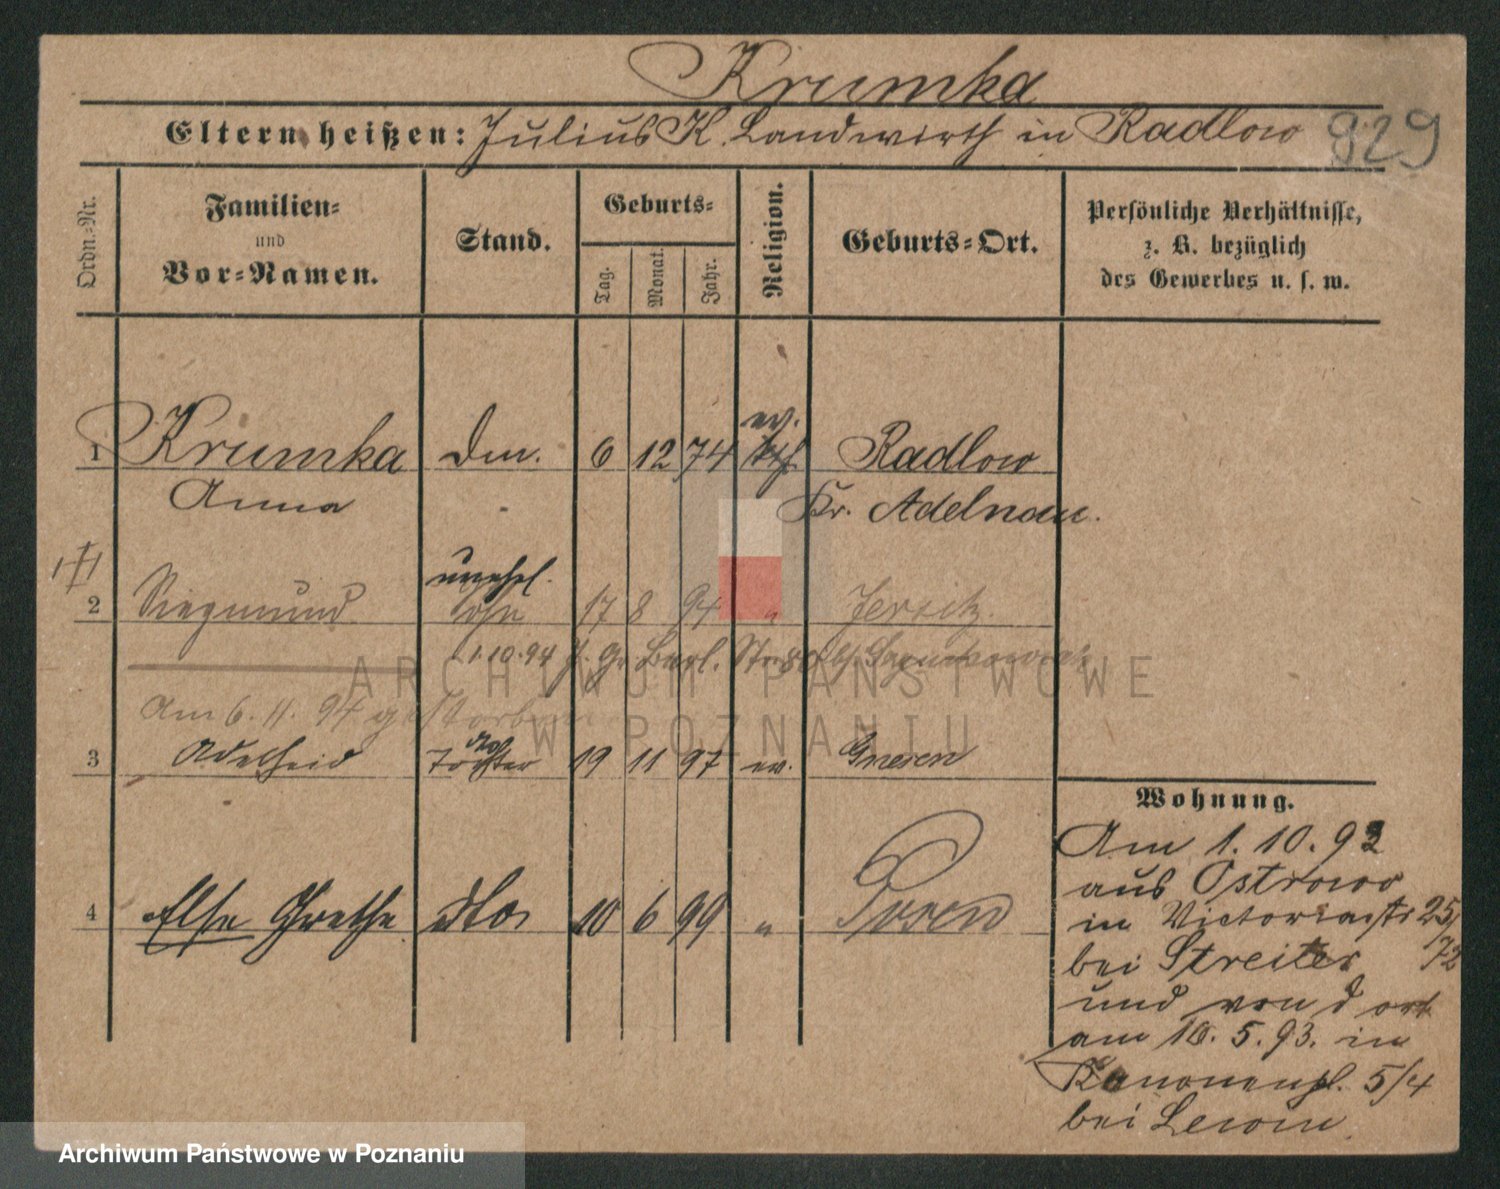 Krumka
Eltern heißen: Julius K. Landwirth in Radlow 829
Ordn.-Nr.
Familien-
und
Vor-Namen.
Stand.
Geburts-
Tag.
Monat.
Jahr.
Religion.
Geburts-Ort.
Persönliche Verhältnisse,
z. B. bezüglich
des Gewerbes u. s. w.
ev.
1 Krumka 6 12 74 Radlow
Anna Kr. Adelnau.
unehel.
2 Siegmund 17 8 94 " Jersitz.
1.10.94 Gr. Berl. Str.
Am 6.11.94 gestorben
3 Adelheid Tochter 19 11 97 ev. Gnesen
4 Else Grethe dto 10 6 99 " Posen
Wohnung.
Am 1.10.92
aus Ostrowo
in Victoriastr 25/
72
bei Streiter
und von dort
am 10.5.93. in
Kanonenpl. 5/4
bei Lewin.
ARCHIWUM PAŃSTWOWE
W POZNANIU
Archiwum Państwowe w Poznaniu